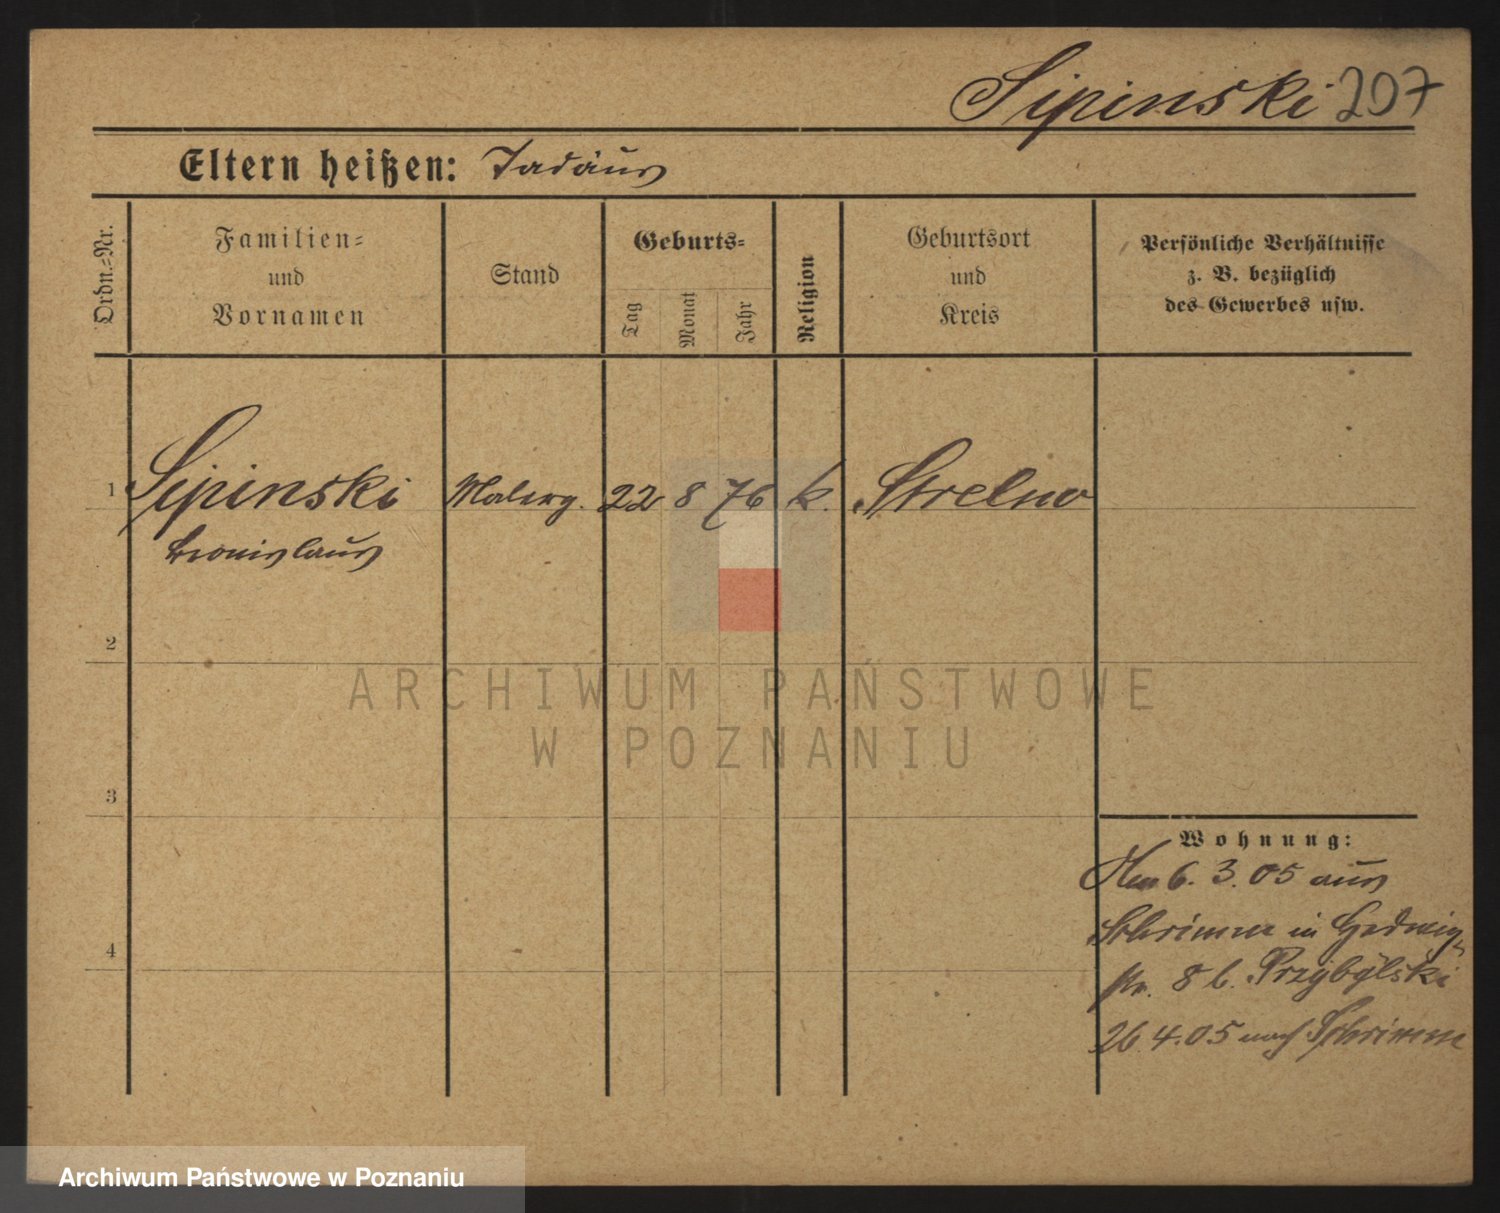 Sipinski 207
Eltern heißen: Tadäus
Ordn.-Nr.
Familien-
und
Vornamen
Stand
Geburts-
Tag
Monat
Jahr
Religion
Geburtsort
und
Kreis
Persönliche Verhältnisse
z. B. bezüglich
des Gewerbes usw.
1 Sipinski Malerg. 22 8 76 k. Strelno
Bronislaus
2
3
4
Wohnung:
6. 3. 05 aus
Schrimm in Hedwig-
str. 8 b. Przybylski
26.4.05 nach Schrimm
ARCHIWUM PAŃSTWOWE
W POZNANIU
Archiwum Państwowe w Poznaniu